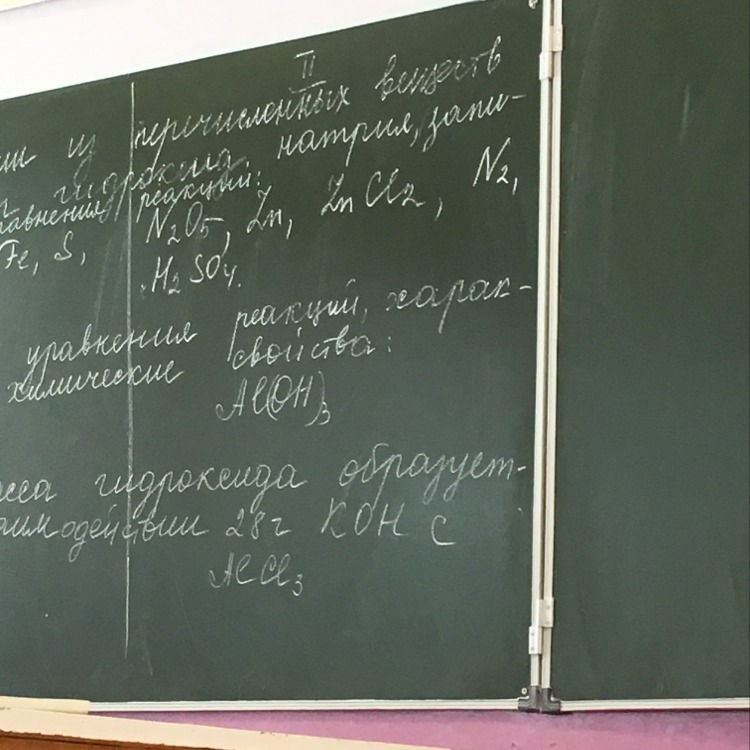 II
из перечисленных веществ
гидроксид натрия, запи-
реакций:
Fe, S, N₂O₅, Zn, ZnCl₂, N₂,
H₂SO₄.
уравнения реакций, харак-
химические свойства:
Al(OH)₃
гидроксида образует-
28г KOH с
AlCl₃